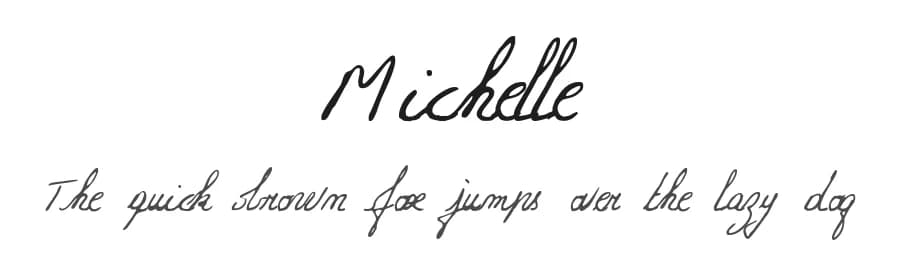 Michelle
The quick brown fox jumps over the lazy dog